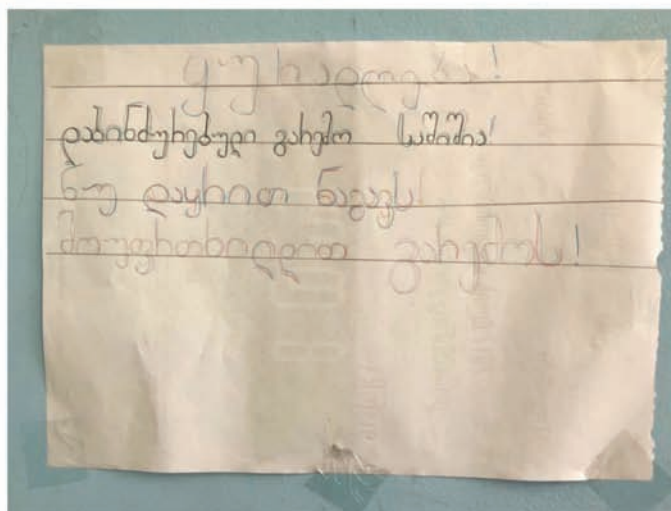 ყურადღება!
დაბინძურებული გარემო საშიშია!
ნუ დაყრით ნაგავს!
მოუფრთხილდით გარემოს!